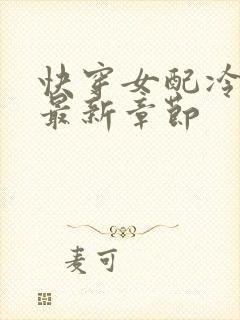 快穿女配冷
最新章节
麦可